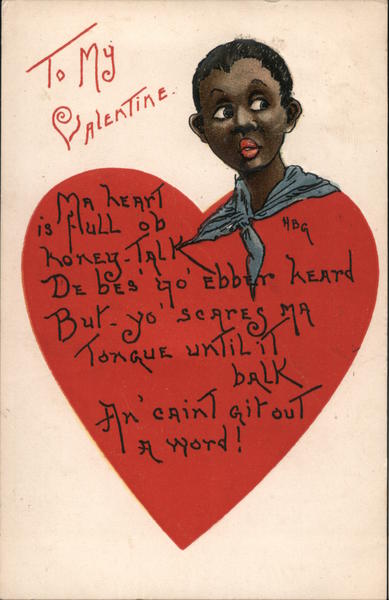 To My
Valentine.
HBG
Ma heart
is full ob
honey-Talk
De bes' yo' ebber heard
But - yo' scares ma
Tongue until it
balk
An' cain't git out
a word!